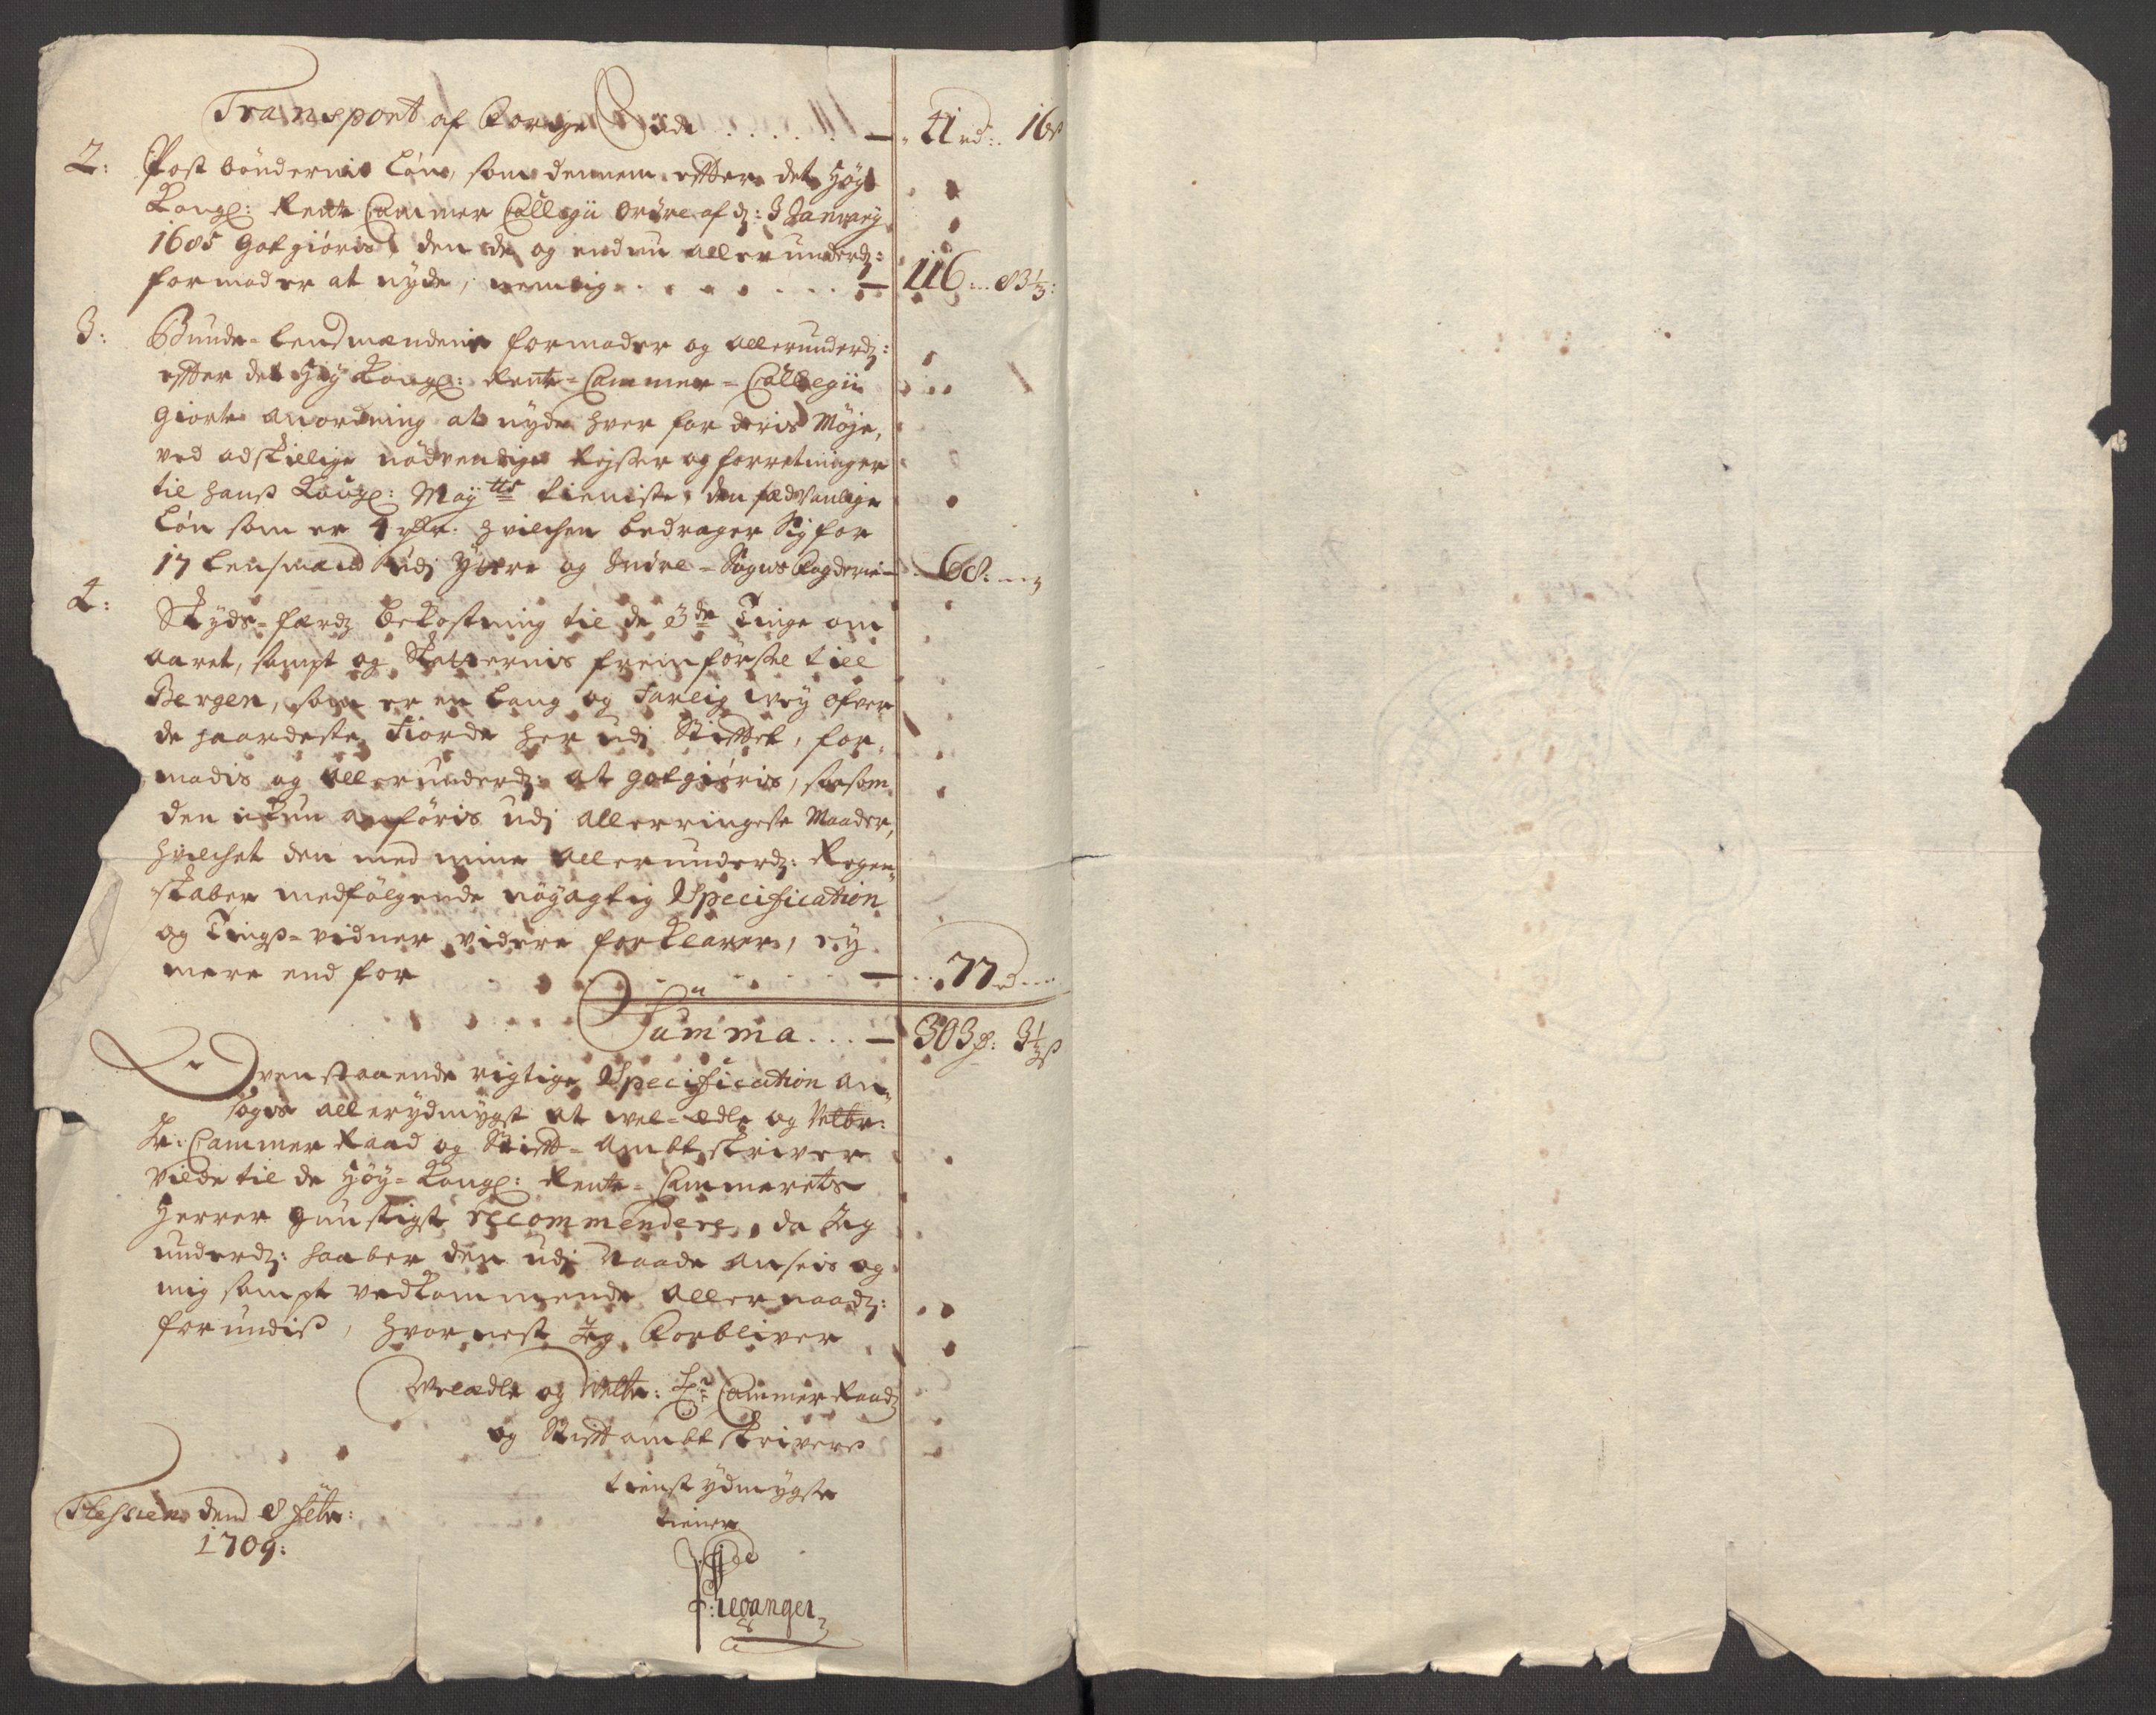 Transport af Forige Side . . . . . — 41 rd: 16 ß
2: Post böndernis Lön, som dennem effter det Höy
Kongl: Rente Cammer Collegii Ordre af d: 3 January
1685 Gotgiöris, den de og endnu allerunderd:
formoder at nyde, nemlig . . . . . . . — 116 . . 83 1/3:
3: Bunde-Lensmændene formoder og allerunderd:
effter det Höy Kongl: Rente-Cammer-Collegii
giorte anordning at nyde hver for deris Möje,
ved adskillige nödvendige Rejser og forretninger
til hans Kongl: May tts tieniste, den sædvanlige
Lön som er 4 rdr. hvilchen bedrager Sig for
17 Lensmænd udj Yttre og Indre-Sogns Fogderie — 68: — "
4: Skyds-færds bekostning til de 3de Tinge om
aaret, sampt og Skatternis fremförsel till
Bergen, som er en lang og farlig vey ofver
de haardeste Fiorde her udj Stifftet, for-
modis og allerunderd: at gotgiöris, saasom
den ikun anföris udj allerringeste Maader,
hvilchet den med mine allerunderd: Regen-
skaber medfölgende nöyagtig Specification
og Tings-vidner videre forklarer, ey
mere end for . . . . . . — . . 77 rd . . .
Summa . . . — 303 r: 3 1/3 ß
Ovenstaaende rigtige Specification an-
söges allerydmygst at vel-ædle og Velbr:
Hr: Cammer Raad og Stifft-Ambtskriver
vilde til de Höy-Kongl: Rente-Cammerets
Herrer gunstigst recommendere, da Jeg
underd: haaber den udj Naade ansees og
mig sampt vedkommende allernaad:
forundis, hvornest Jeg Forbliver
Velædle og Velbr: Hr Cammer Raads
og Stifftambtskrivers
tienst ydmygste
tiener
Flessien dend 8 Febr:
1709:
Leganger